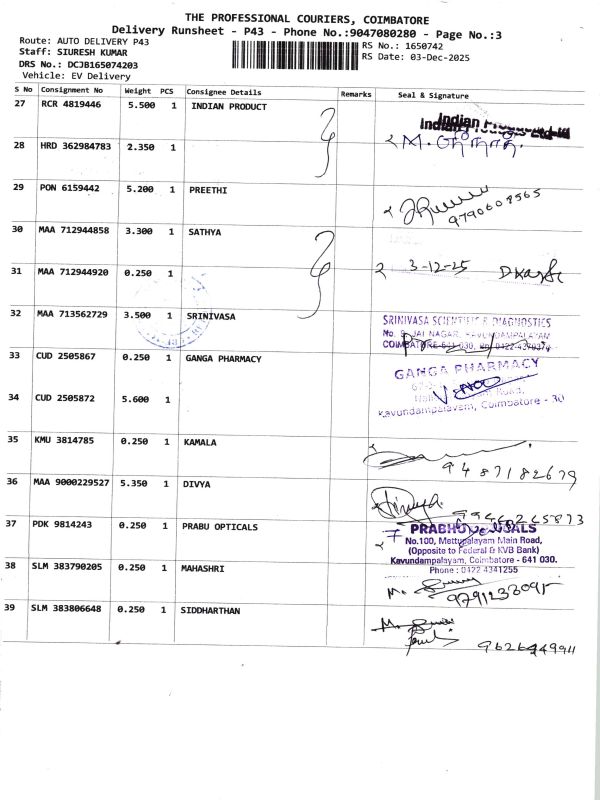 THE PROFESSIONAL COURIERS, COIMBATORE
Delivery Runsheet - P43 - Phone No.:9047080280 - Page No.:3
Route: AUTO DELIVERY P43
RS No.: 1650742
Staff: SIURESH KUMAR
RS Date: 03-Dec-2025
DRS No.: DCJB165074203
Vehicle: EV Delivery
S No Consignment No Weight PCS Consignee Details Remarks Seal & Signature
27 RCR 4819446 5.500 1 INDIAN PRODUCT
Indian
28 HRD 362984783 2.350 1
29 PON 6159442 5.200 1 PREETHI
30 MAA 712944858 3.300 1 SATHYA
31 MAA 712944920 0.250 1
3-12-25
32 MAA 713562729 3.500 1 SRINIVASA
SRINIVASA SCIENTIFIC & DIAGNOSTICS
JAI NAGAR, KAVUNDAMPALAYAM
COIMBATORE-641 030.
33 CUD 2505867 0.250 1 GANGA PHARMACY
GANGA PHARMACY
34 CUD 2505872 5.600 1
Kavundampalayam, Coimbatore - 30
35 KMU 3814785 0.250 1 KAMALA
9487182679
36 MAA 9000229527 5.350 1 DIVYA
Divya
37 PDK 9814243 0.250 1 PRABU OPTICALS
PRABHU OPTICALS
No.100, Mettupalayam Main Road,
(Opposite to Federal & KVB Bank)
Kavundampalayam, Coimbatore - 641 030.
Phone : 0422 4341255
38 SLM 383790205 0.250 1 MAHASHRI
39 SLM 383806648 0.250 1 SIDDHARTHAN